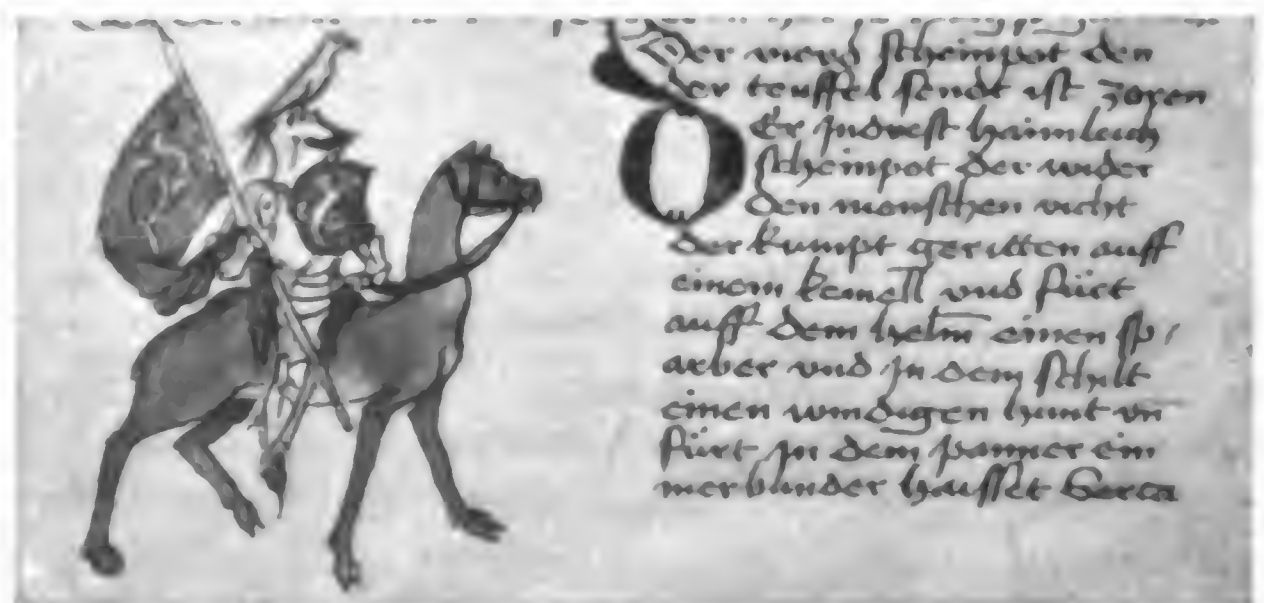 Der vierd scheinpot den
der teuffel sendt ist zoren
Er Jndrest haimleich
scheinpot der wider
den menschen vicht
der kumpt geritten auff
einem kemell vnd fürt
auff dem helm̄ einen sp/
arber vnd Jn dem schilt
einen windigen hunt vn̄
fürt Jn dem panner ein
merbunder haisset